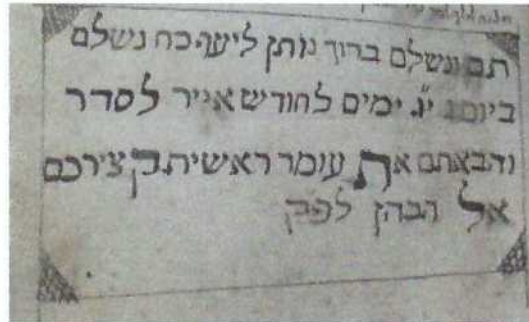 תם ונשלם ברוך נותן ליעף כח נשלם
ביום ג י"ג ימים לחודש אייר לסדר
והבאתם את עומר ראשית קצירכם
אל הכהן לפק